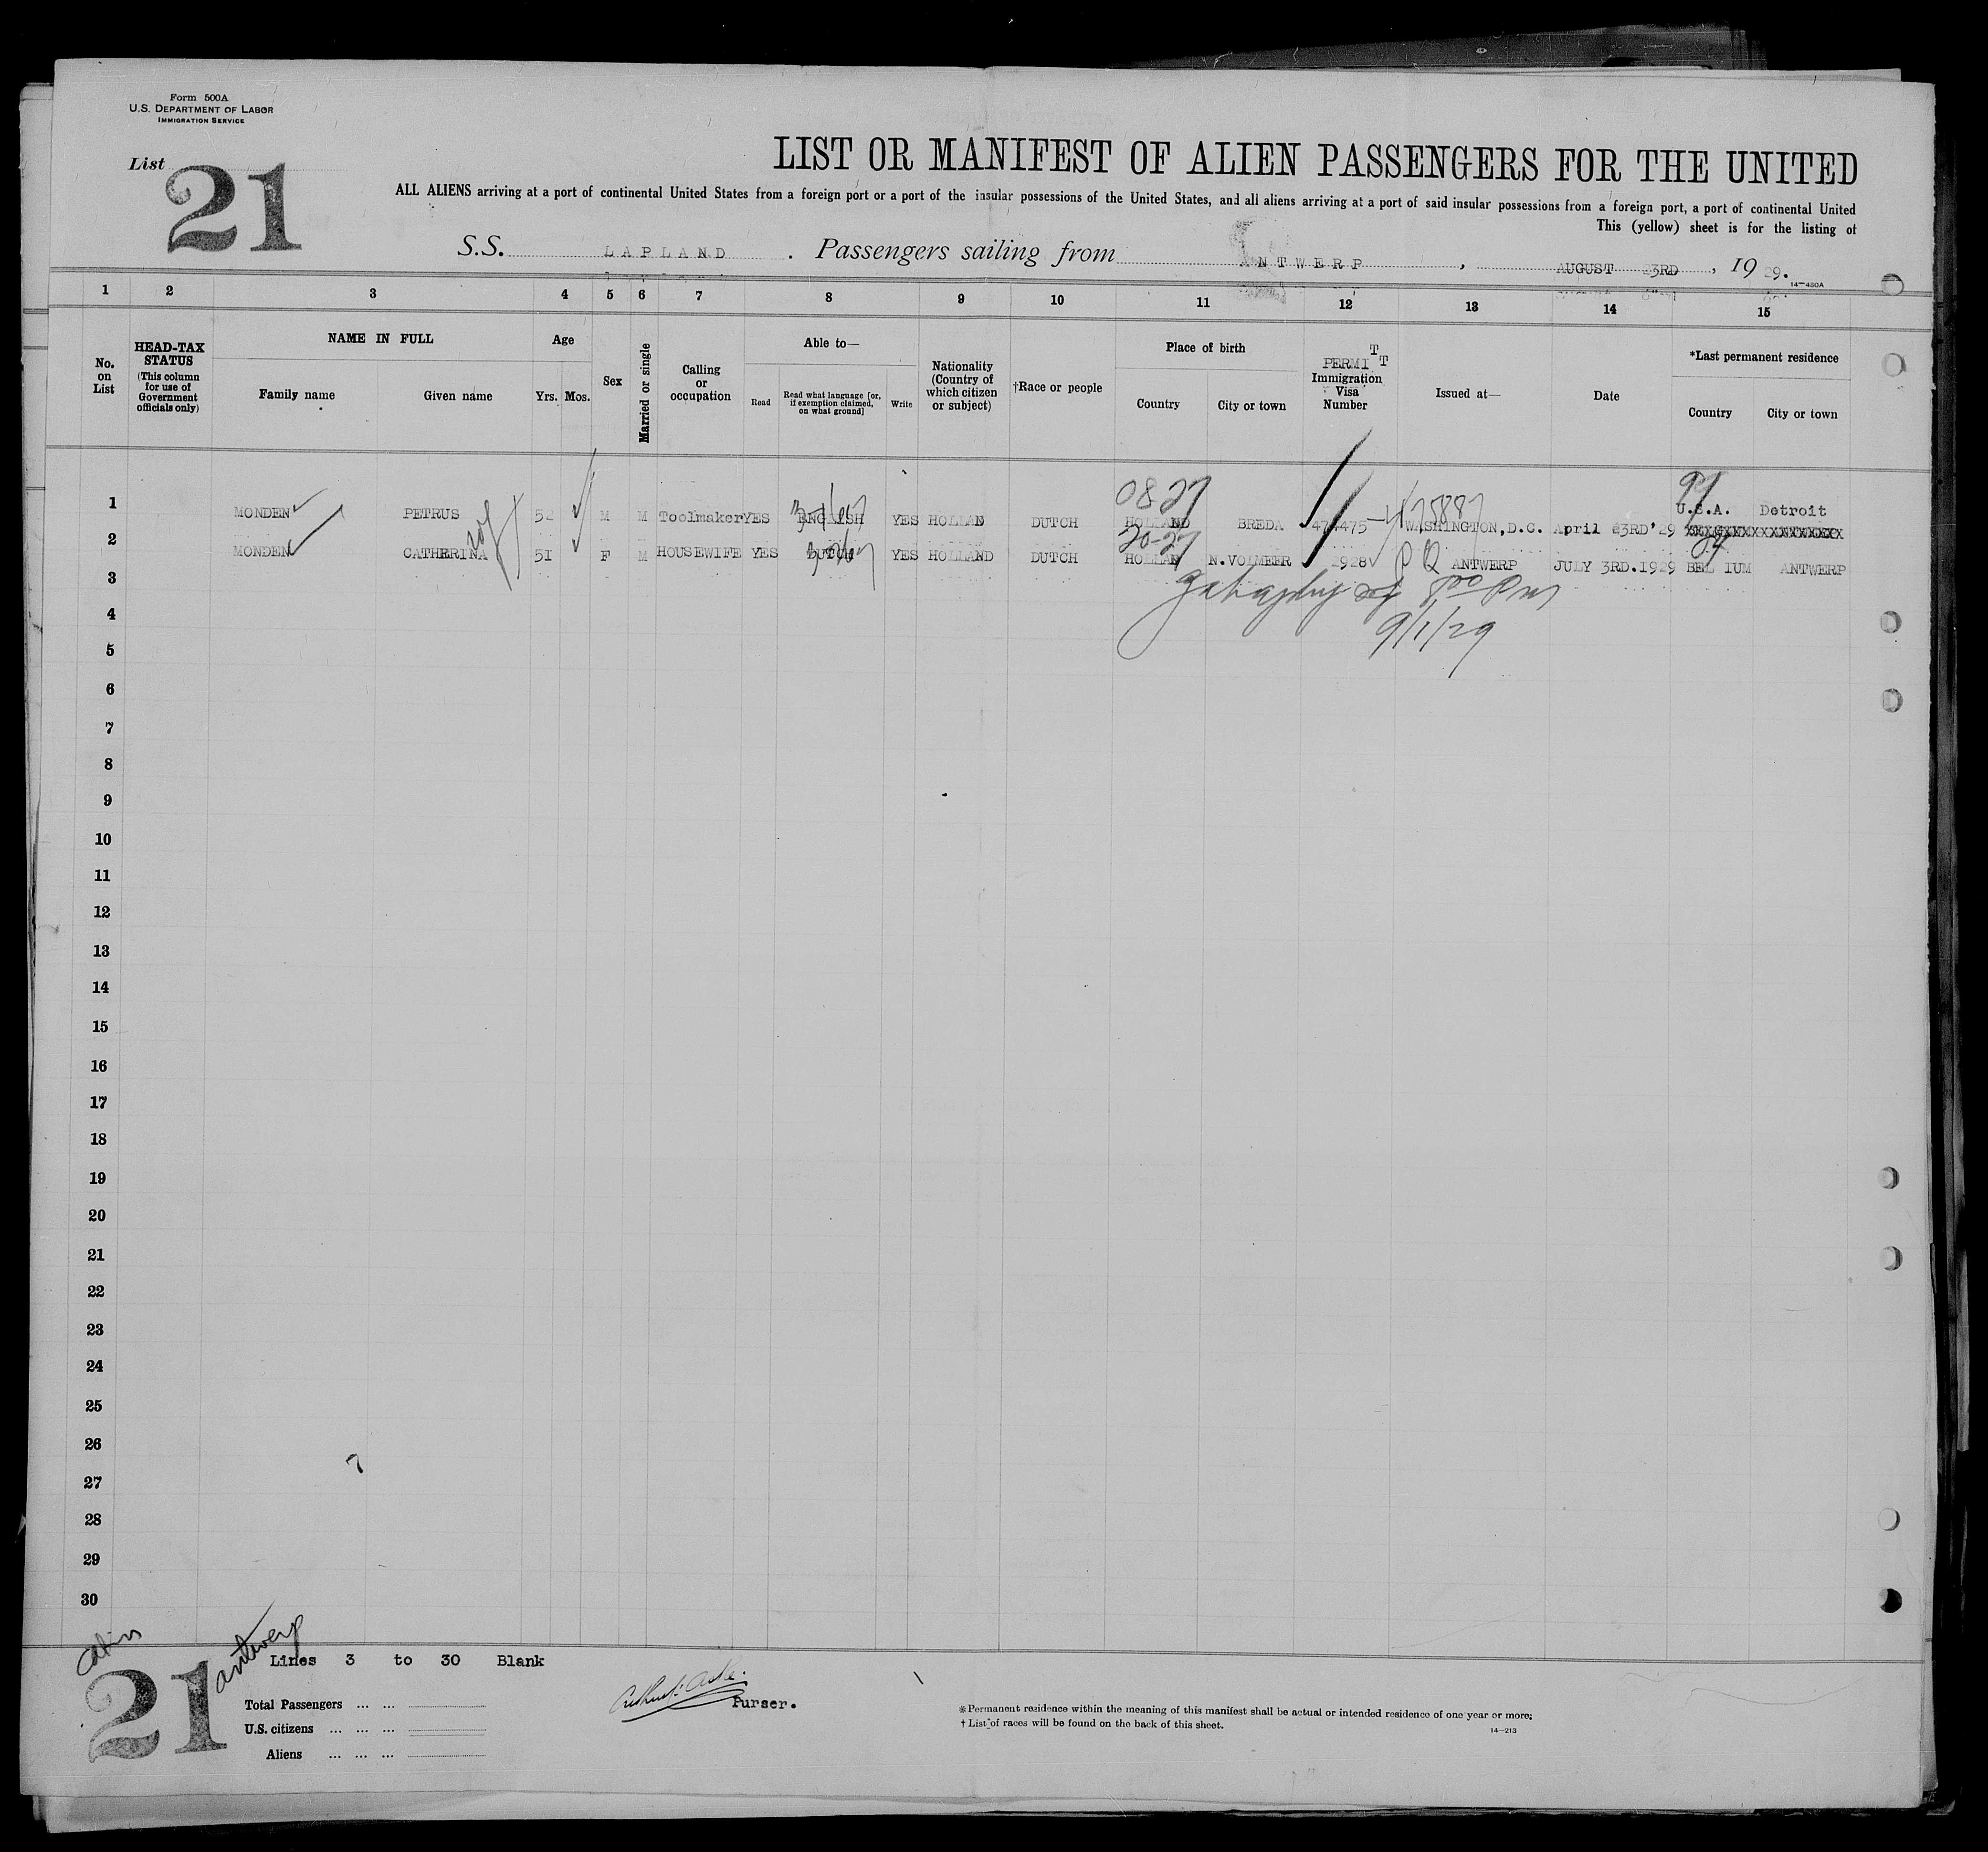 Form 500A
U.S. DEPARTMENT OF LABOR
IMMIGRATION SERVICE
List 21
LIST OR MANIFEST OF ALIEN PASSENGERS FOR THE UNITED
ALL ALIENS arriving at a port of continental United States from a foreign port or a port of the insular possessions of the United States, and all aliens arriving at a port of said insular possessions from a foreign port, a port of continental United
This (yellow) sheet is for the listing of
S.S. LAPLAND. Passengers sailing from ANTWERP, AUGUST 23RD, 1929.
14-430A
1 2 3 4 5 6 7 8 9 10 11 12 13 14 15
No. on List
HEAD-TAX STATUS
(This column for use of Government officials only)
NAME IN FULL
Family name Given name
Age
Yrs. Mos.
Sex
Married or single
Calling or occupation
Able to—
Read
Read what language [or, if exemption claimed, on what ground]
Write
Nationality (Country of which citizen or subject)
†Race or people
Place of birth
Country City or town
PERMIT
T
Immigration Visa Number
Issued at—
Date
*Last permanent residence
Country City or town
0827
1 MONDEN PETRUS 52 M M Toolmaker YES ENGLISH YES HOLLAND DUTCH HOLLAND BREDA 474475 WASHINGTON,D.C. April 23RD'29 U.S.A. Detroit
20-27
2 MONDEN CATHERINA 51 F M HOUSEWIFE YES YES HOLLAND DUTCH HOLLAN N.VOLMEER 2928 PQ ANTWERP JULY 3RD.1929 BEL IUM ANTWERP
3
4
9/1/29
5
6
7
8
9
10
11
12
13
14
15
16
17
18
19
20
21
22
23
24
25
26
27
28
29
30
Cabin
21
antwerp
Lines 3 to 30 Blank
Total Passengers ... ...
U.S. citizens ... ... ...
Aliens ... ... ...
Purser.
*Permanent residence within the meaning of this manifest shall be actual or intended residence of one year or more.
† List of races will be found on the back of this sheet.
14-213